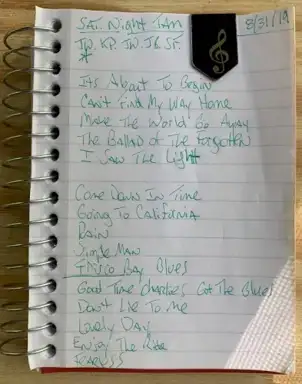 SAT. Night JAM
8/31/19
TW. KP. JW. JB. SF.
It's About To Begin
Can't Find My Way Home
Make The World Go Away
The Ballad of The Forgotten
I Saw The Light
Come Down In Time
Going To California
Rain
Simple Man
Frisco Bay Blues
Good Time Charlies Got The Blues
Don't Lie To Me
Lovely Day
Enjoy The Ride